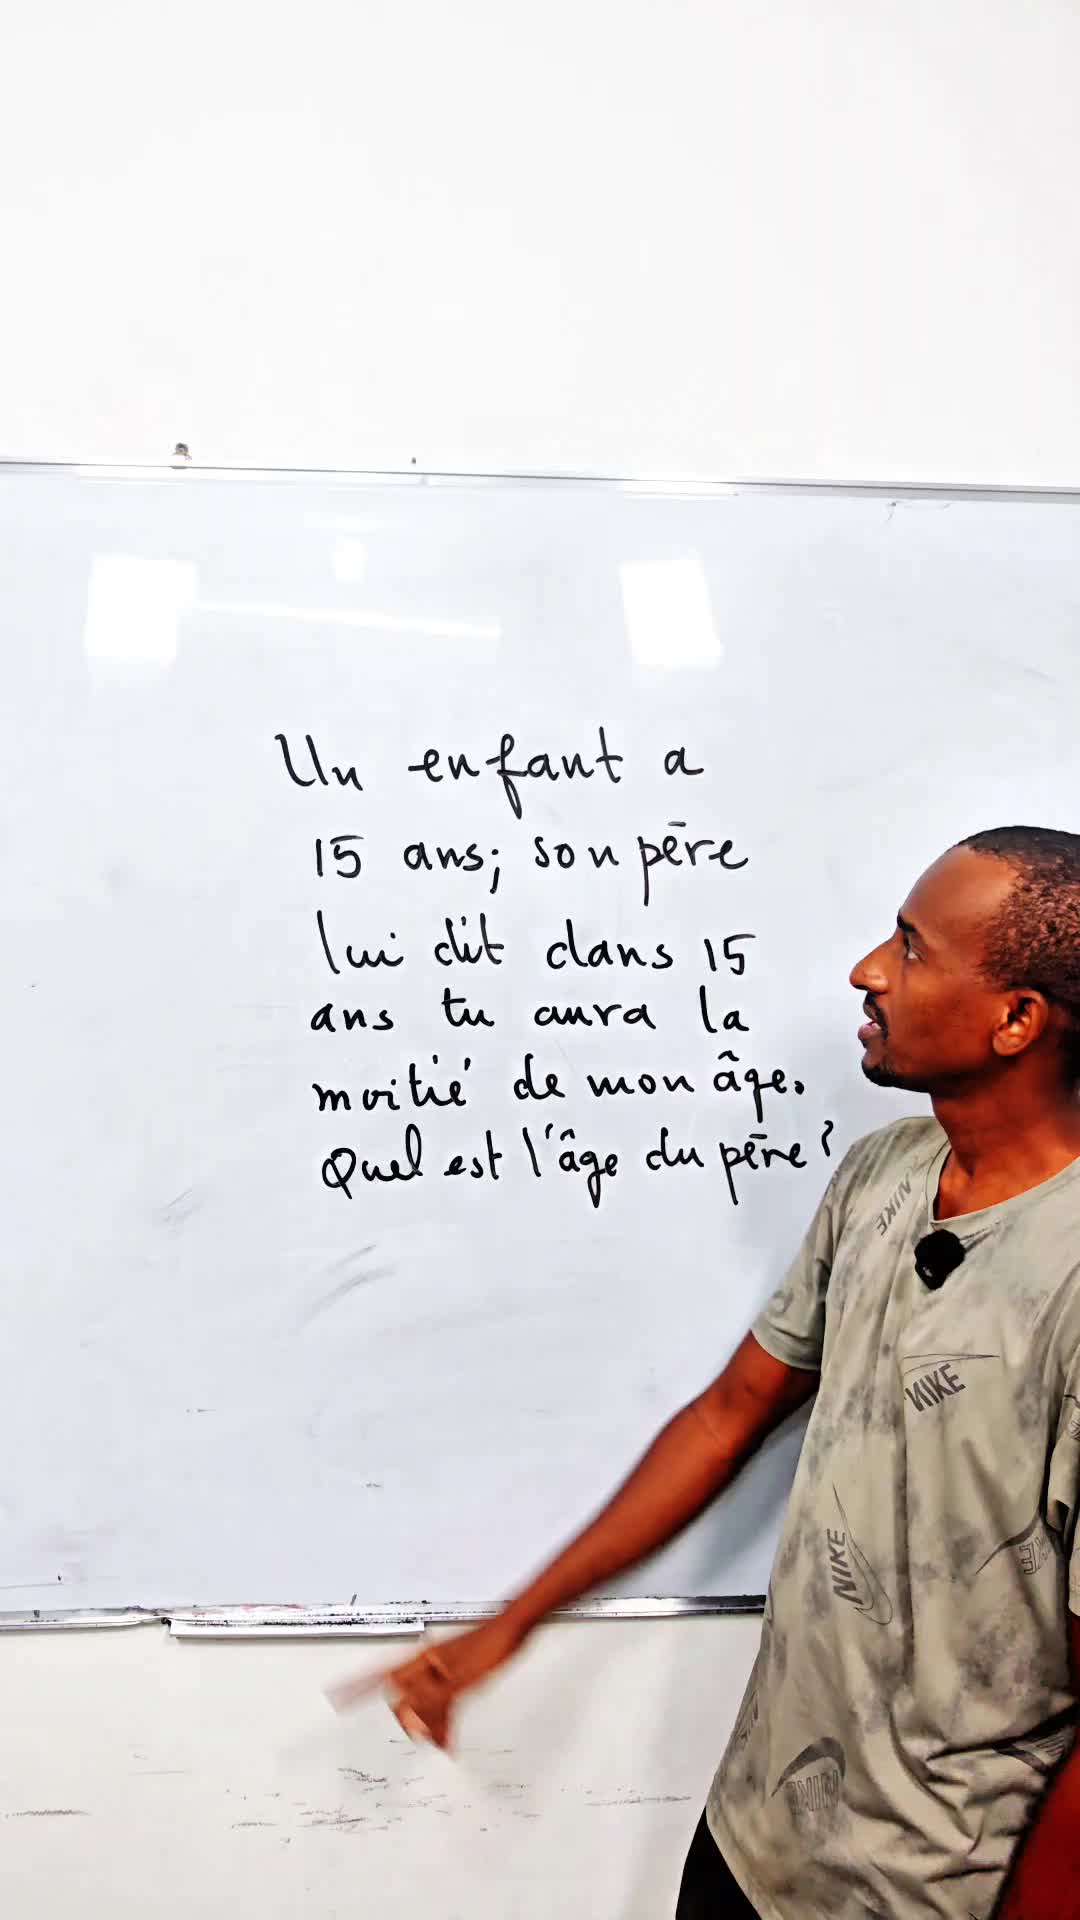 Un enfant a
15 ans; son père
lui dit dans 15
ans tu aura la
moitié de mon âge.
Quel est l'âge du père?
NIKE
NIKE
NIKE
NIKE